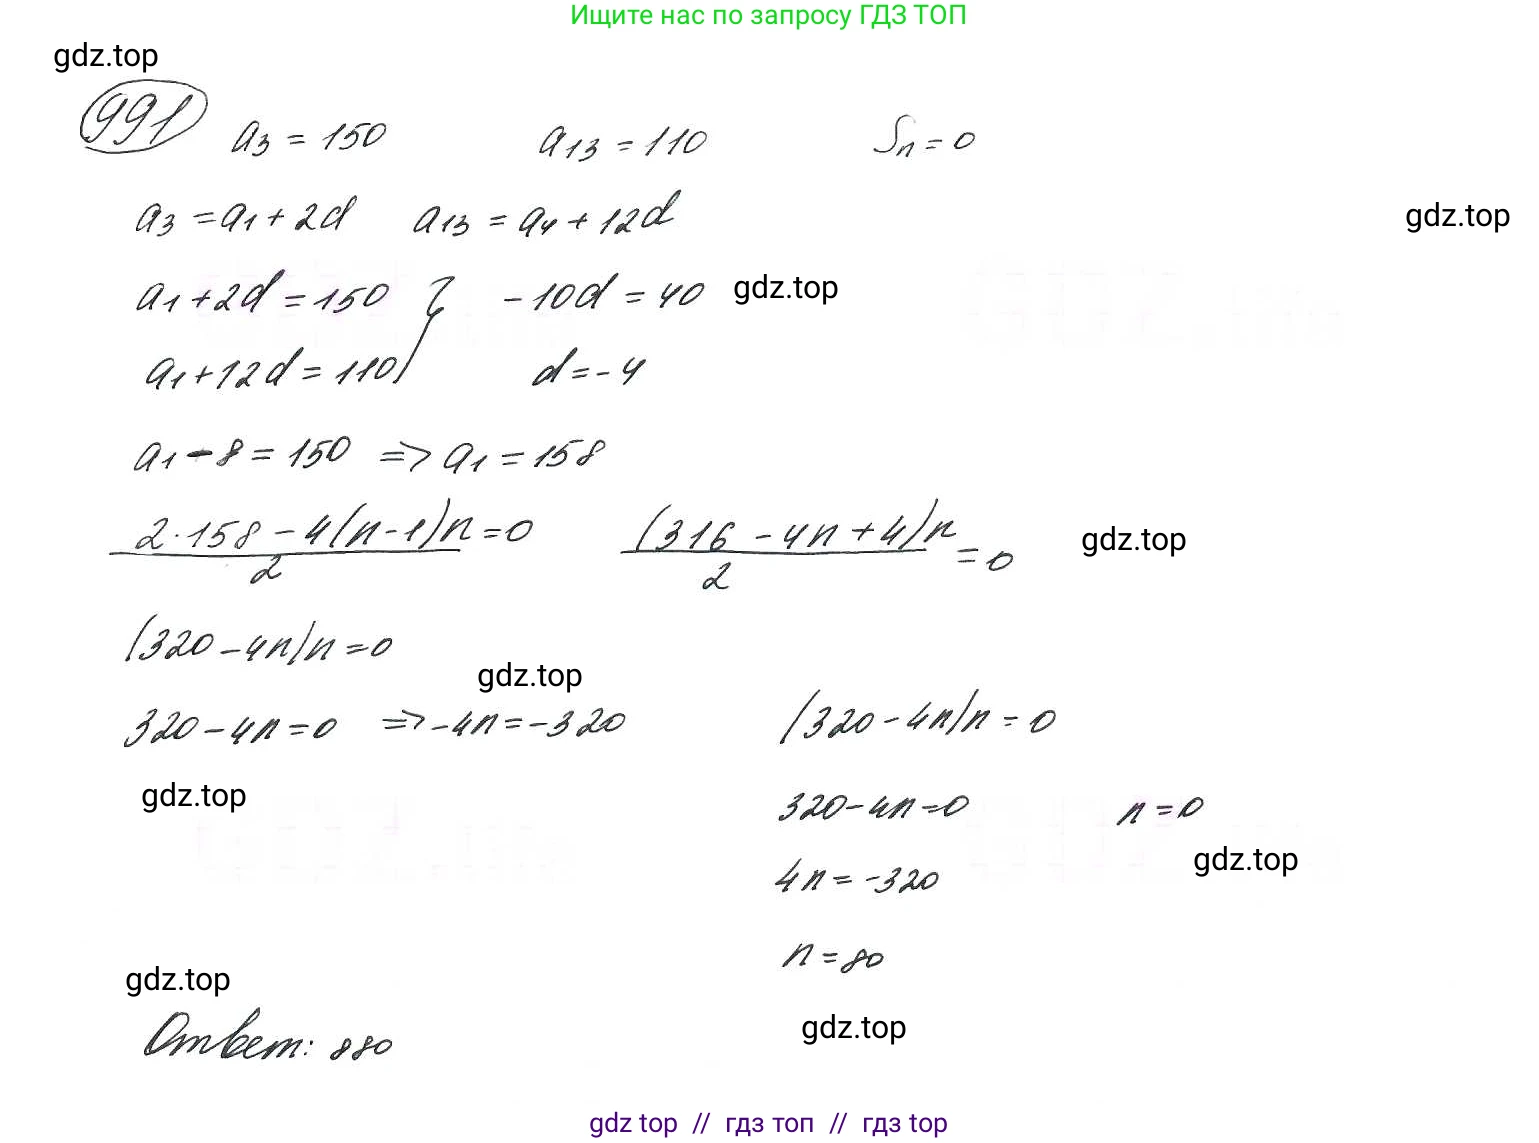 Ищите нас по запросу ГДЗ ТОП
gdz.top
991 a₃ = 150 a₁₃ = 110 Sₙ = 0
a₃ = a₁ + 2d a₁₃ = a₄ + 12d
gdz.top
a₁ + 2d = 150 } -10d = 40
gdz.top
a₁ + 12d = 110 d = -4
a₁ - 8 = 150 => a₁ = 158
2·158 - 4(n-1)n/2 = 0 (316 - 4n + 4)n/2 = 0
gdz.top
(320 - 4n)n = 0
gdz.top
320 - 4n = 0 => -4n = -320 (320 - 4n)n = 0
gdz.top
320 - 4n = 0 n = 0
gdz.top
4n = -320
n = 80
gdz.top
Ответ: 880
gdz.top
gdz top // гдз топ // гдз top